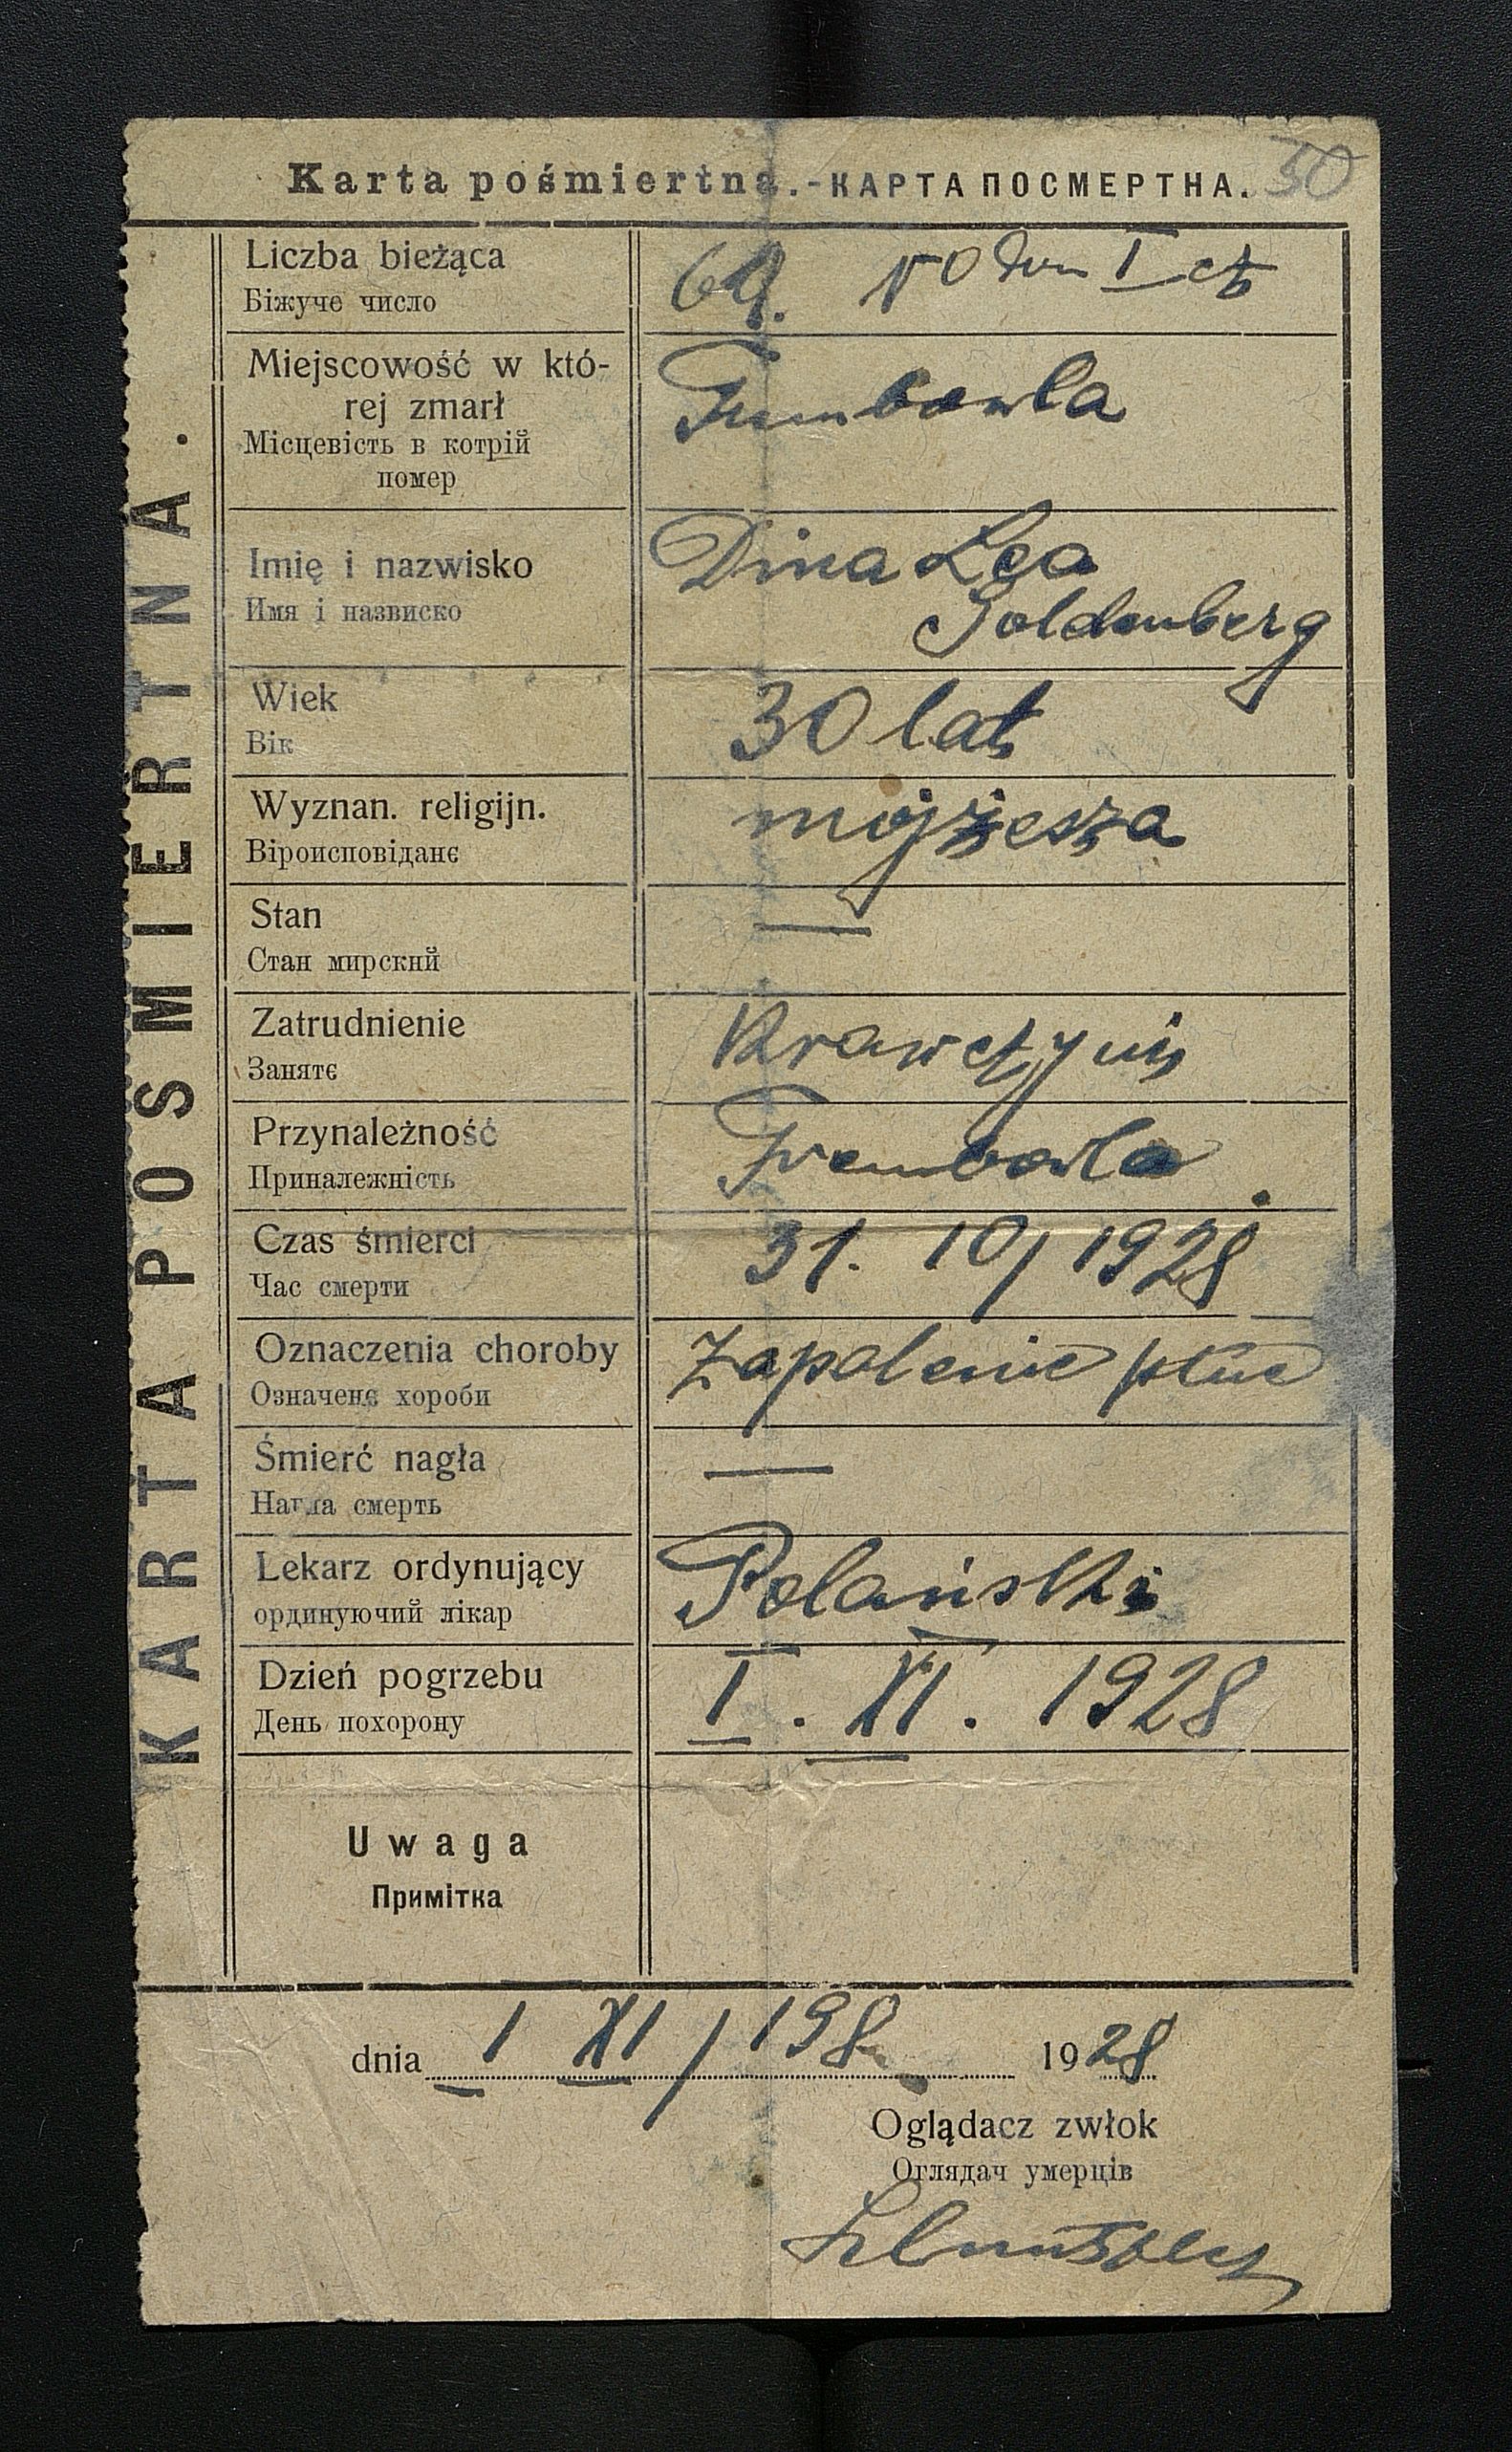 Karta pośmiertna.-КАРТА ПОСМЕРТНА. 50
KARTA POSMIERTNA.
Liczba bieżąca
Біжуче число
69.
Miejscowość w któ-
rej zmarł
Місцевість в котрій
помер
Trembowla
Imię i nazwisko
Имя і назвиско
Dina Lea
Goldenberg
Wiek
Вік
30 lat
Wyznan. religijn.
Віроисповіданє
mojżesza
Stan
Стан мирский
—
Zatrudnienie
Занятє
Krawczyni
Przynależność
Приналежність
Trembowla
Czas śmierci
Час смерти
31. 10/1928
Oznaczenia choroby
Означенє хороби
Zapalenie płuc
Śmierć nagła
Нагла смерть
—
Lekarz ordynujący
ординуючий лікар
Polański
Dzień pogrzebu
День похорону
I. XI. 1928
Uwaga
Примітка
dnia I XI / 198 1928
Oglądacz zwłok
Оглядач умерців